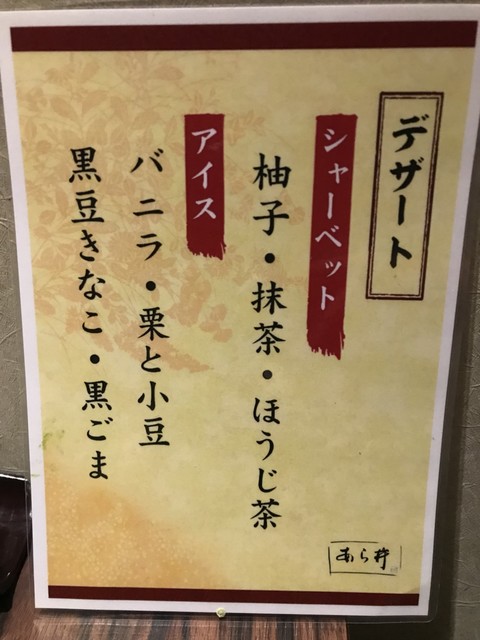 デザート
シャーベット
柚子・抹茶・ほうじ茶
アイス
バニラ・栗と小豆
黒豆きなこ・黒ごま
あら井